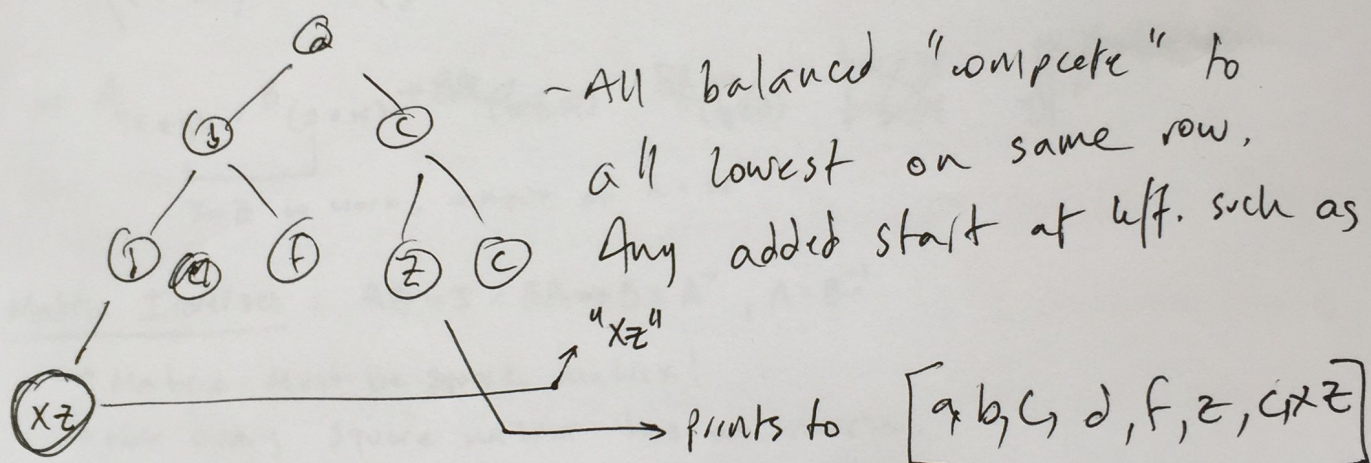 a
- All balanced "compcete" to
b c
all lowest on same row.
Any added start at left. such as
f z c
"xz"
xz
prints to [a, b, c, d, f, z, c, xz]